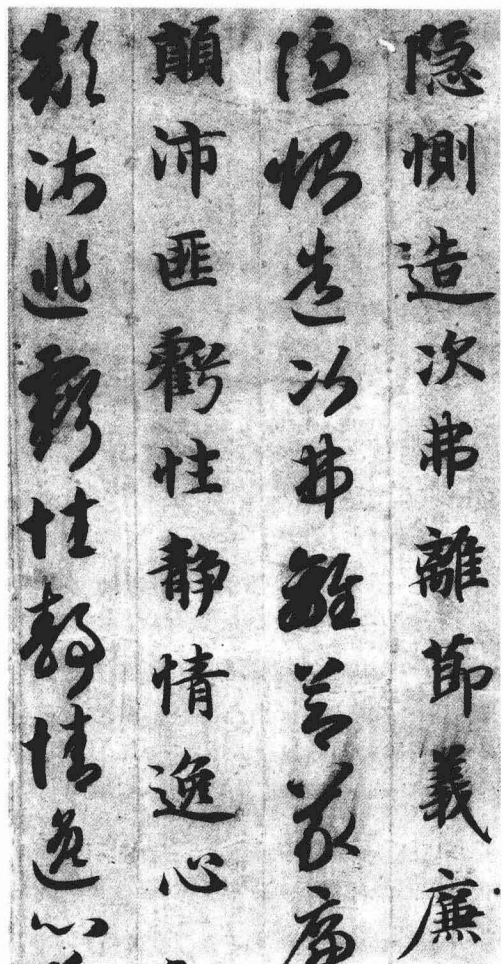 隐惻造次弗離節義廉
隐惻造次弗離節義廉
顛沛匪虧性静情逸心
顛沛匪虧性静情逸心